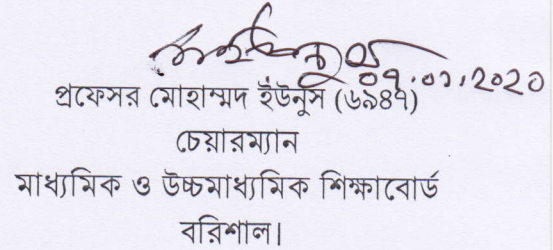 ০৭.০১.২০২০
প্রফেসর মোহাম্মদ ইউনুস (৬৯৪৭)
চেয়ারম্যান
মাধ্যমিক ও উচ্চমাধ্যমিক শিক্ষাবোর্ড
বরিশাল।